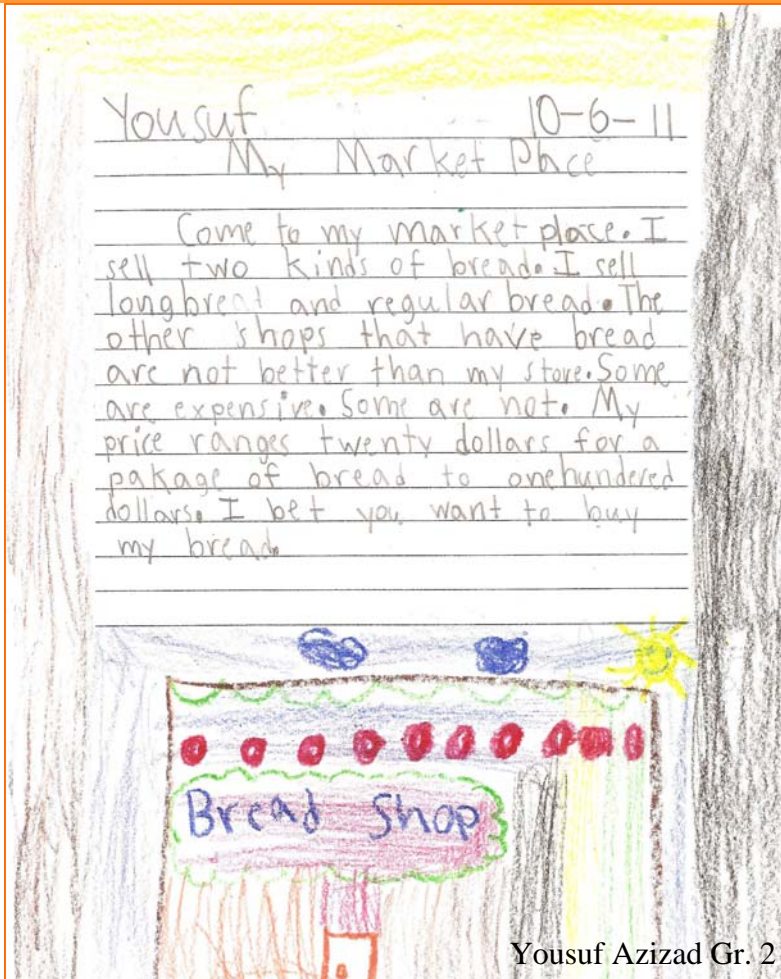 Yousuf 10-6-11
My Market Place
Come to my market place. I
sell two kinds of bread. I sell
longbread and regular bread. The
other shops that have bread
are not better than my store. Some
are expensive. Some are not. My
price ranges twenty dollars for a
pakage of bread to onehundered
dollars. I bet you want to buy
my bread.
Bread Shop
Yousuf Azizad Gr. 2